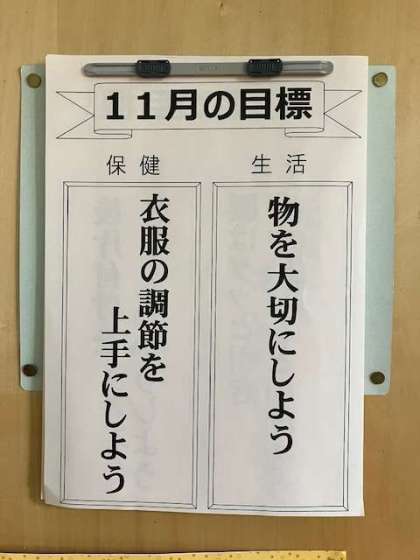 11月の目標
生活
物を大切にしよう
保健
衣服の調節を
上手にしよう